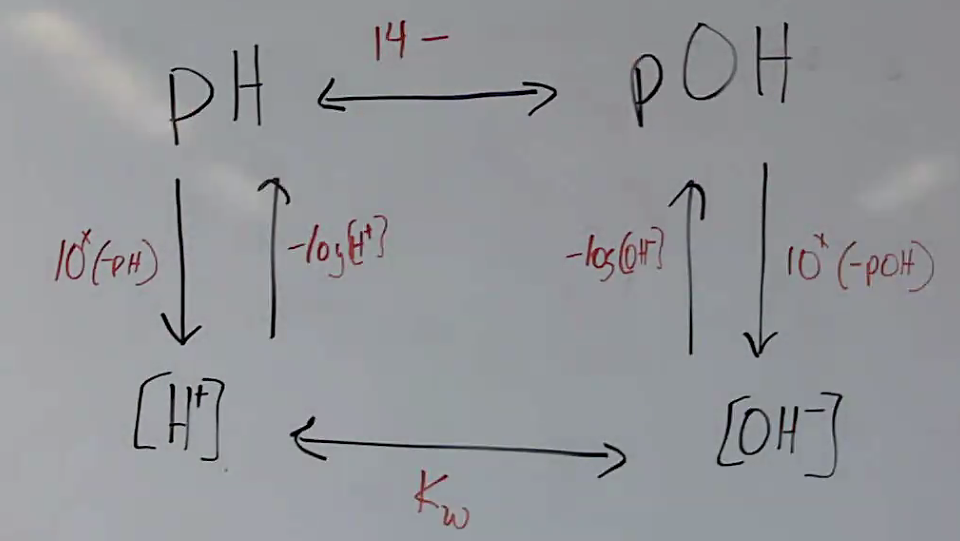 14 -
pH ⟷ pOH
10ˣ(-pH) ↓ ↑ -log[H⁺] -log[OH⁻] ↑ ↓ 10ˣ(-pOH)
[H⁺] ⟷ [OH⁻]
Kw